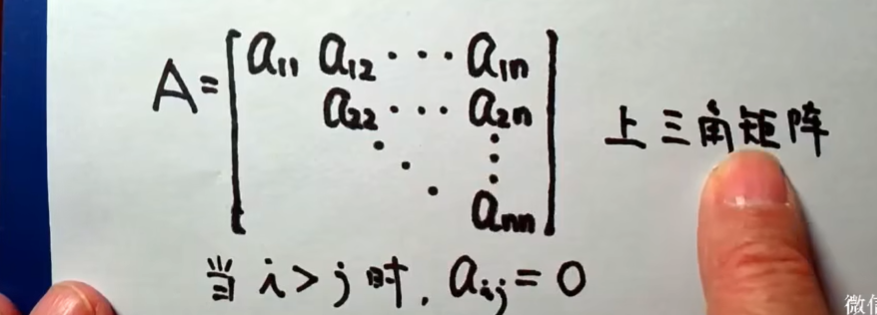 A = [ a₁₁ a₁₂ ··· a₁ₙ
a₂₂ ··· a₂ₙ
⋱ ⋮
aₙₙ ]
上三角矩阵
当 i > j 时, aᵢⱼ = 0
微信